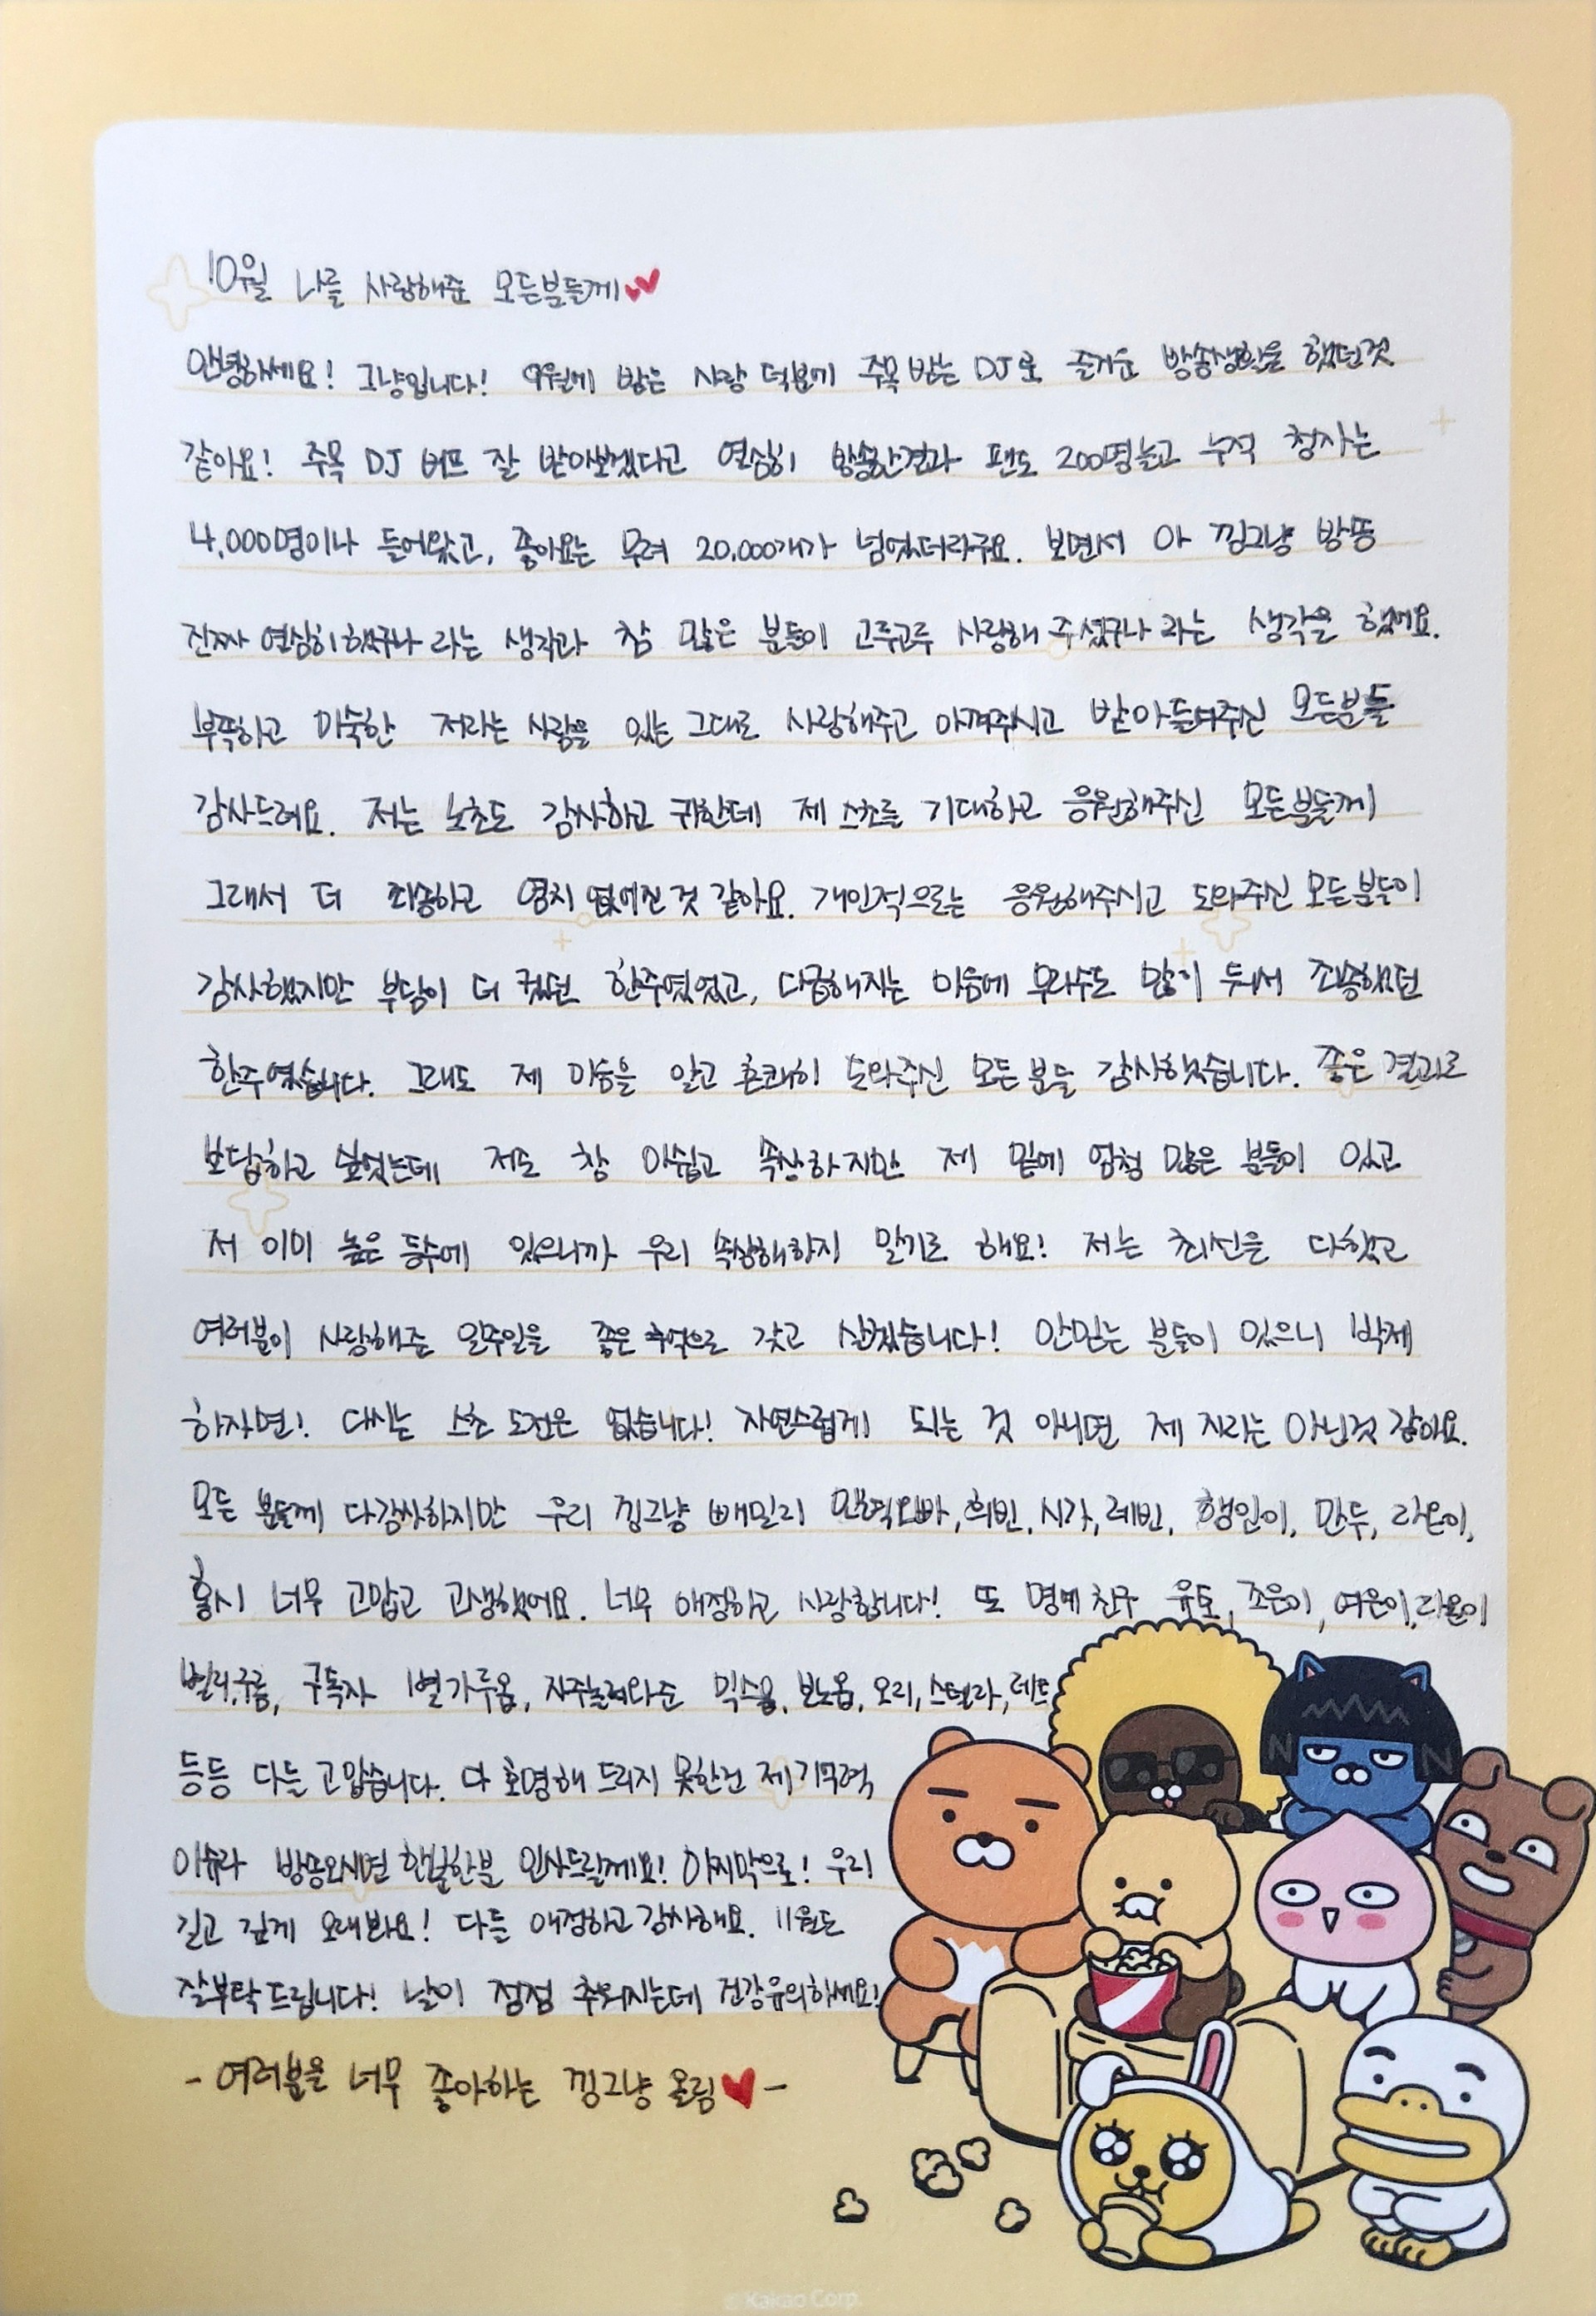 10월 나를 사랑해준 모든분들께
안녕하세요! 그냥입니다! 9월에 받은 사랑 덕분에 주목 받는 DJ로 즐거운 방송생활을 했던것
같아요! 주목 DJ 버프 잘 받아보겠다고 열심히 방송한결과 팬도 200명늘고 누적 청자는
4,000명이나 들어왔고, 좋아요는 무려 20,000개가 넘었더라구요. 보면서 아 낑그냥 방뚱
진짜 열심히했구나 라는 생각과 참 많은 분들이 고루고루 사랑해 주셨구나 라는 생각을 했어요.
부족하고 미숙한 저라는 사람을 있는 그대로 사랑해주고 아껴주시고 받아들여주신 모든분들
감사드려요. 저는 노초도 감사하고 귀한데 제 스초를 기대하고 응원해주신 모든분들께
그래서 더 죄송하고 염치 없어진 것 같아요. 개인적으로는 응원해주시고 도와주신 모든분들이
감사했지만 부담이 더 컸던 한주였었고, 다급해지는 마음에 무리수도 많이 둬서 죄송했던
한주였습니다. 그래도 제 마음을 알고 흔쾌히 도와주신 모든분들 감사했습니다. 좋은 결과로
보답하고 싶었는데 저도 참 아쉽고 속상하지만 제 밑에 엄청 많은 분들이 있고
저 이미 높은 등수에 있으니까 우리 속상해하지 말기로 해요! 저는 최선을 다했고
여러분이 사랑해준 일주일을 좋은 추억으로 갖고 살겠습니다! 안믿는 분들이 있으니 박제
하자면! 다시는 스초 도전은 없습니다! 자연스럽게 되는 것 아니면 제 자리는 아닌것 같아요.
모든 분들께 다감싸하지만 우리 낑그냥 빼밀리 민혁오빠, 희빈, 시가, 레빈, 행인이, 만두, 라온이,
홍시 너무 고맙고 고생했어요. 너무 애정하고 사랑합니다! 또 명예친구 유토, 조은이, 여은이, 다온이
벌리, 구름, 구독자 1별가루옴, 자주놀러와준 믹스옴, 보노옴, 오리, 스텔라, 레드
등등 다들 고맙습니다. 다 호명해 드리지 못한건 제 기억력
이슈라 방송오시면 한분한분 인사드릴께요! 마지막으로! 우리
길고 깊게 오래봐요! 다들 애정하고 감사해요. 11월도
잘부탁드립니다! 날이 점점 추워지는데 건강유의하세요!
- 여러분을 너무 좋아하는 낑그냥 올림 -
© Kakao Corp.